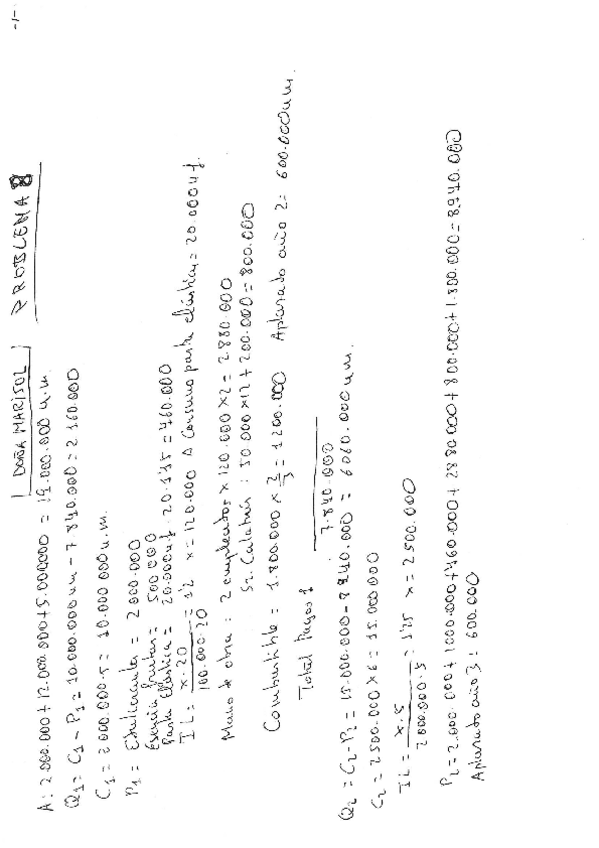 -1-
DOÑA MARISOL PROBLEMA 8
A: 2.000.000 + 12.000.000 + 5.000.000 = 19.000.000 u.m.
Q1 = C1 - P1 = 10.000.000 um - 7.840.000 = 2.160.000
C1 = 2.000.000 · 5 = 10.000.000 u.m.
P1 = Edulcorante = 2.000.000
Esencia frutas = 500.000
Parte Elástica = 20.000 uf · 20 · 1'15 = 460.000
IL = x · 20 / 100.000 · 20 = 1'2 x = 120.000 Δ Consumo parte elástica = 20.000 uf.
Mano de obra: 2 empleados x 120.000 x 12 = 2.880.000
Sr. Calatrair: 50.000 x 12 + 200.000 = 800.000
Combustible = 1.800.000 x 2/3 = 1.200.000 Aplazado año 2 = 600.000 u.m.
Total Pagos 1 7.840.000
Q2 = C2 - P2 = 15.000.000 - 8.940.000 = 6.060.000 u.m.
C2 = 2.500.000 x 6 = 15.000.000
IL = x · 5 / 2.000.000 · 5 = 1'25 x = 2.500.000
P2 = 2.000.000 + 1.000.000 + 460.000 + 2.880.000 + 800.000 + 1.800.000 = 8.940.000
Aplazado año 3 = 600.000